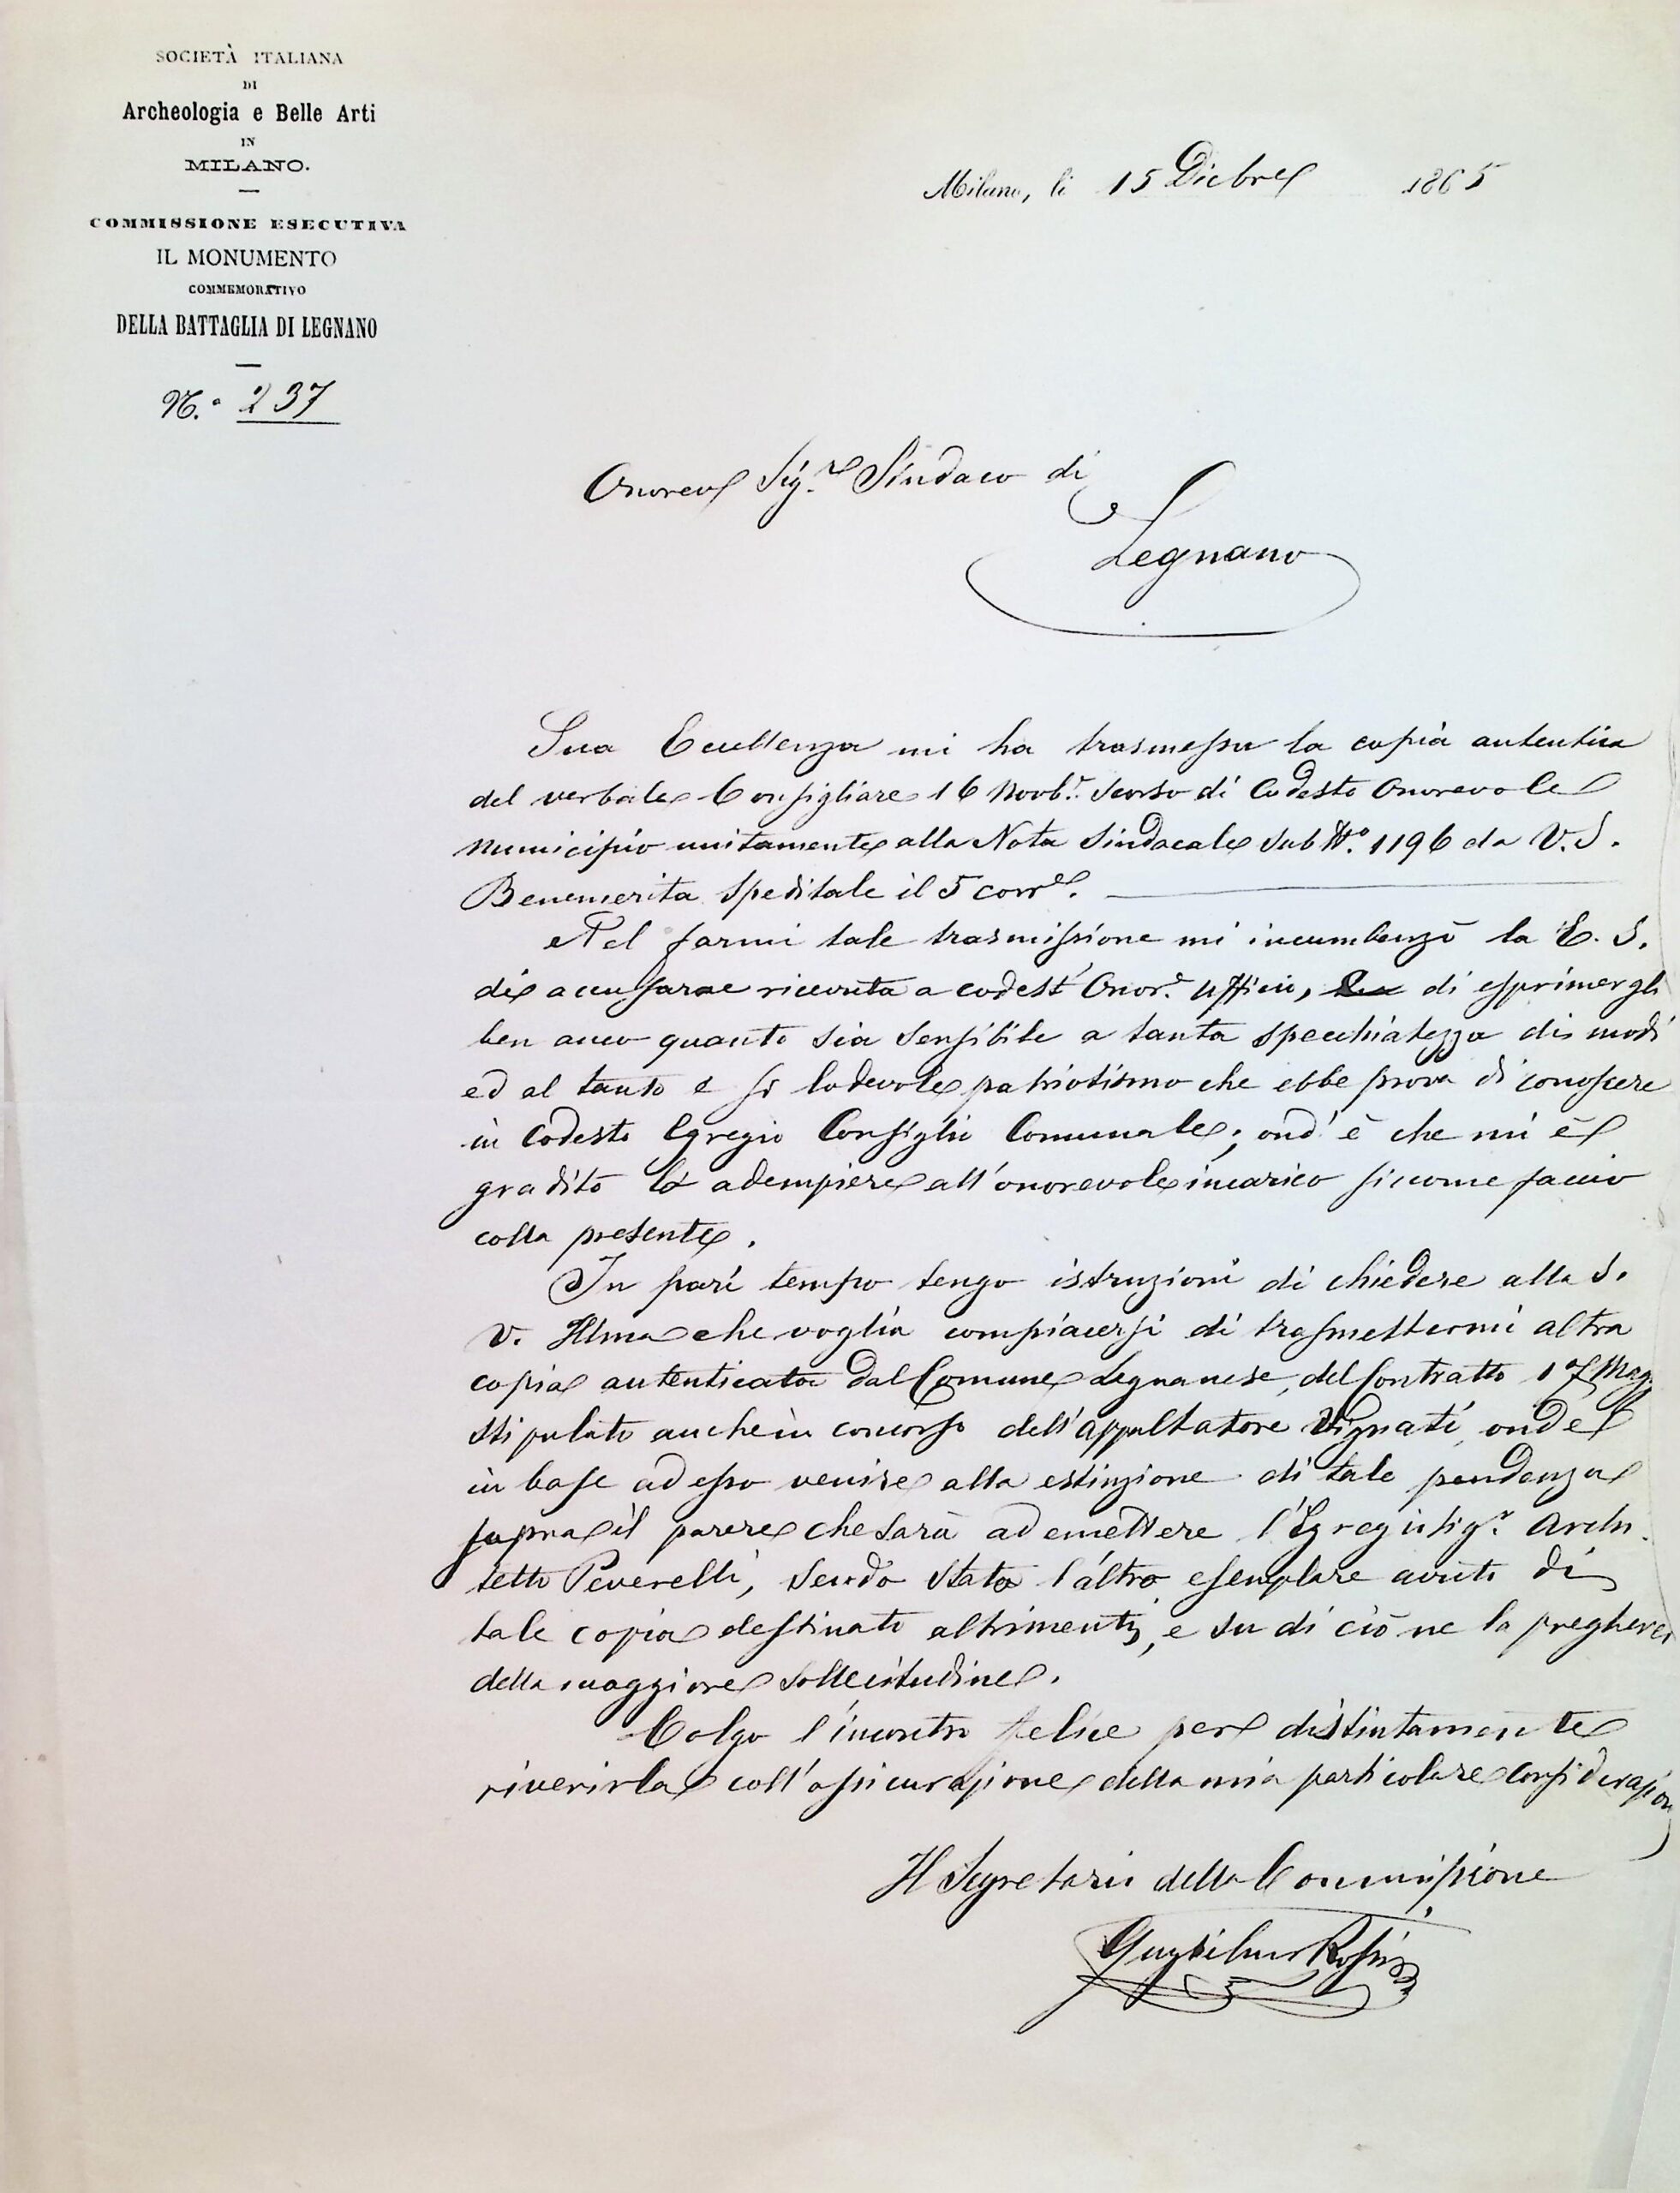 SOCIETÀ ITALIANA
DI
Archeologia e Belle Arti
IN
MILANO.
COMMISSIONE ESECUTIVA
IL MONUMENTO
COMMEMORATIVO
DELLA BATTAGLIA DI LEGNANO
N.° 237
Milano, li 15 Dicbre 1865
Onorev Sig.re Sindaco di
Legnano
Sua Eccellenza mi ha trasmessa la copia autentica
del verbale Consigliare 16 Novb.e scorso di Codesto Onorevole
Municipio unitamente alla Nota Sindacale sub N.° 1196 da V. S.
Benemerita speditale il 5 corre.
Nel farmi tale trasmissione mi incumbenzò la E. S.
di accusarne ricevuta a codest' Onor.e Ufficio, di esprimergli
ben anco quanto sia sensibile a tanta specchiatezza di modi
ed al tanto e sì lodevole patriotismo che ebbe prova di conoscere
in Codesto Egregio Consiglio Comunale; ond' è che mi è
gradito adempiere all'onorevole incarico siccome faccio
colla presente.
In pari tempo tengo istruzioni di chiedere alla S.
V. Illma che voglia compiacersi di trasmettermi altra
copia autenticata dal Comune Legnanese, del Contratto 17 Mag.
stipulato anche in concorso dell'appaltatore Vignati, onde
in base ad esso venire alla estinzione di tale pendenza
sopra il parere che sarà ad emettere l'Egregio Sig.r Archi-
tetto Peverelli, sendo stato l'altro esemplare avuto di
tale copia destinato altrimenti, e su di ciò ne la pregherei
della maggiore sollecitudine.
Colgo l'incontro felice per distintamente
riverirla coll'assicurazione della mia particolare considerazione
Il Segretario della Commissione
Guglielmo Rossi